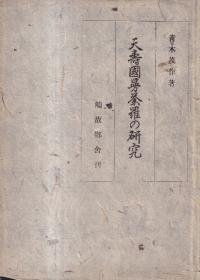 青木茂作著
天壽國曼荼羅の研究
鵤故郷舍刊